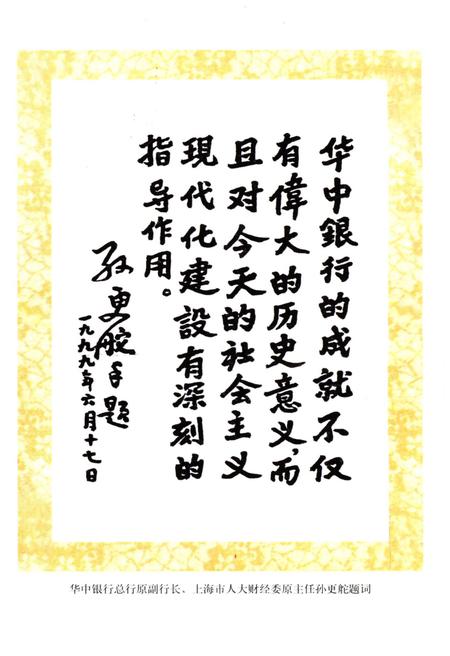 华中銀行的成就不仅
有偉大的历史意义,而
且对今天的社会主义
現代化建設有深刻的
指导作用。
孙更舵手题
一九九九年六月十七日
华中银行总行原副行长、上海市人大财经委原主任孙更舵题词